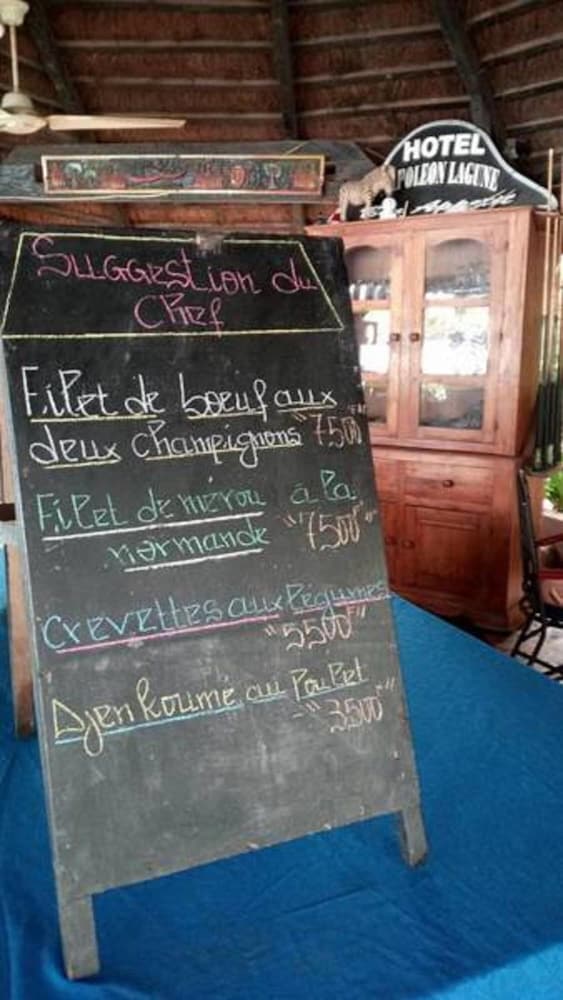 HOTEL
POLEON LAGUNE
Bon Appetit
SUGGEStion du
Chef
Filet de boeuf aux
deux champignons "7500"
Filet de mérou à la
normande "7500"
Crevettes aux légumes
"5500F"
Djenkoumé au Poulet
- "3500"